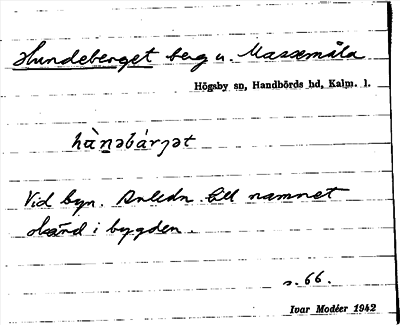 Hundeberget berg u. Massemåla
Högsby sn, Handbörds hd, Kalm. l.
hànəbárjət
Vid byn. Anledn. till namnet
okänd i bygden.
s. 66.
Ivar Modéer 1942